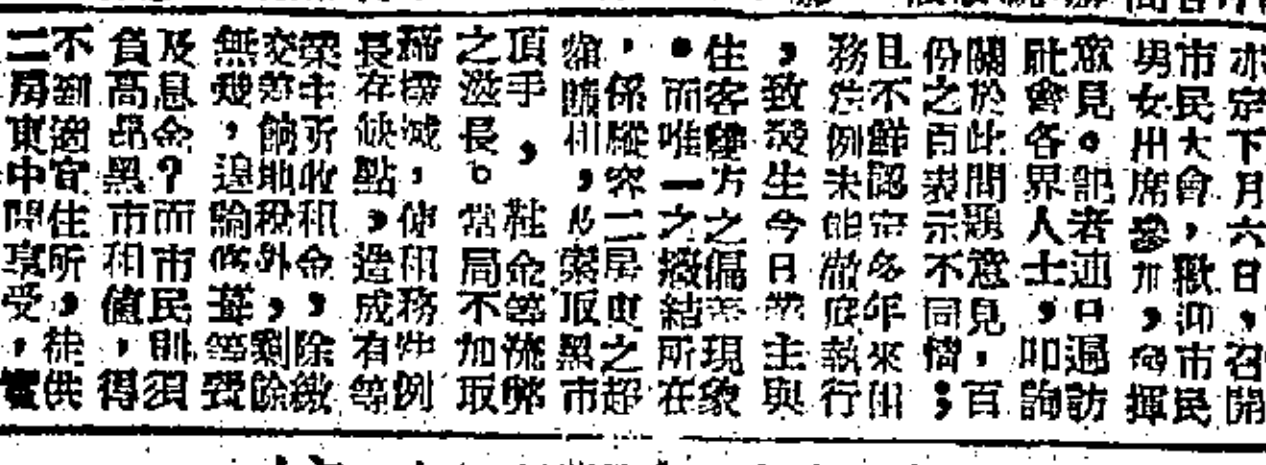 亦定下月六日，召開
市民大會，歡迎市民
男女出席參加，發揮
意見。記者連日遍訪
社會各界人士，叩詢
關於此問題意見，百
份之百表示不同情；
且不鮮認定多年來租
務法例未能澈底執行
，致發生今日業主與
住客雙方之偏差現象
●而唯一之癥結所在
，係縱容二房東之超
額賺租，及索取黑市
頂手，鞋金等流弊
之滋長。當局不加取
締撲滅，使租務法例
長存缺點，造成有等
業主所收租金，除繳
交差餉地稅外，剩餘
無幾，遑論修葺等費
及息金？而市民則須
負高昂黑市租值，得
不到適宜住所，徒供
二房東中間享受，實